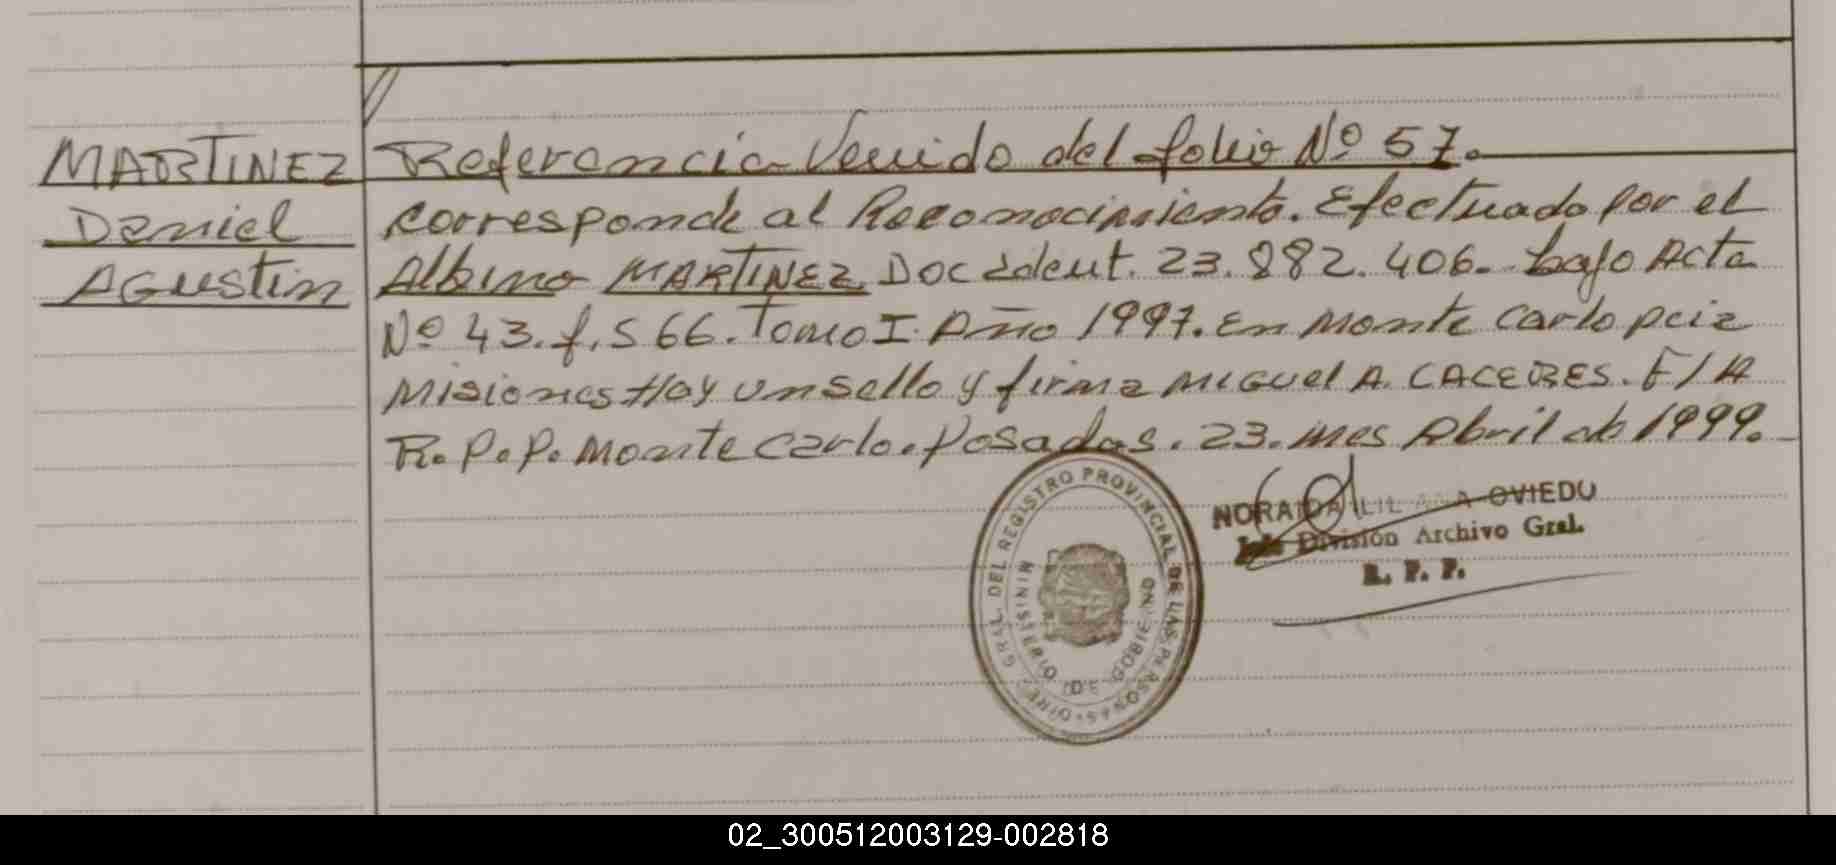 MARTINEZ
Daniel
Agustin
Referencia Venido del folio Nº 57.
corresponde al Reconocimiento. Efectuado por el
Albino MARTINEZ Doc Ident. 23.882.406. bajo Acta
Nº 43. f. 566. Tomo I. Año 1997. En Monte Carlo pcia
Misiones Hay un sello y firma MIGUEL A. CACERES. F/A
R.P.P. Monte Carlo. Posadas. 23. mes Abril de 1999.
DIREC. GRAL. DEL REGISTRO PROVINCIAL DE LAS PERSONAS
MINISTERIO DE GOBIERNO
NORAIDA LILIANA OVIEDO
Jefe División Archivo Gral.
R. P. P.
02_300512003129-002818